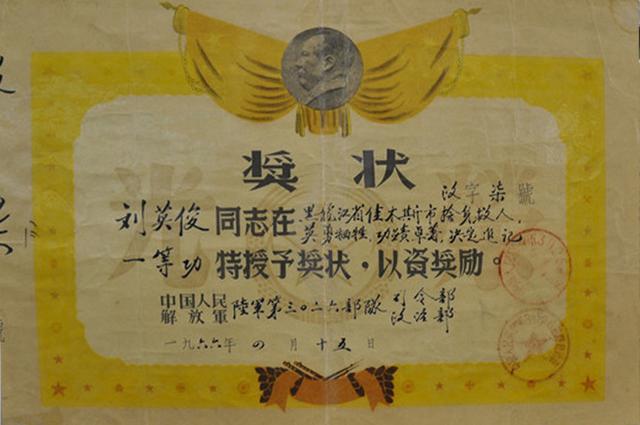 奖状
政字柒號
刘英俊同志在黑龙江省佳木斯市捨身救人,
英勇牺牲,功绩卓著,决定追记
一等功特授予奖状·以资奖励。
中国人民解放軍陸軍第三〇二六部隊司令部
政治部
一九六六年四月十五日